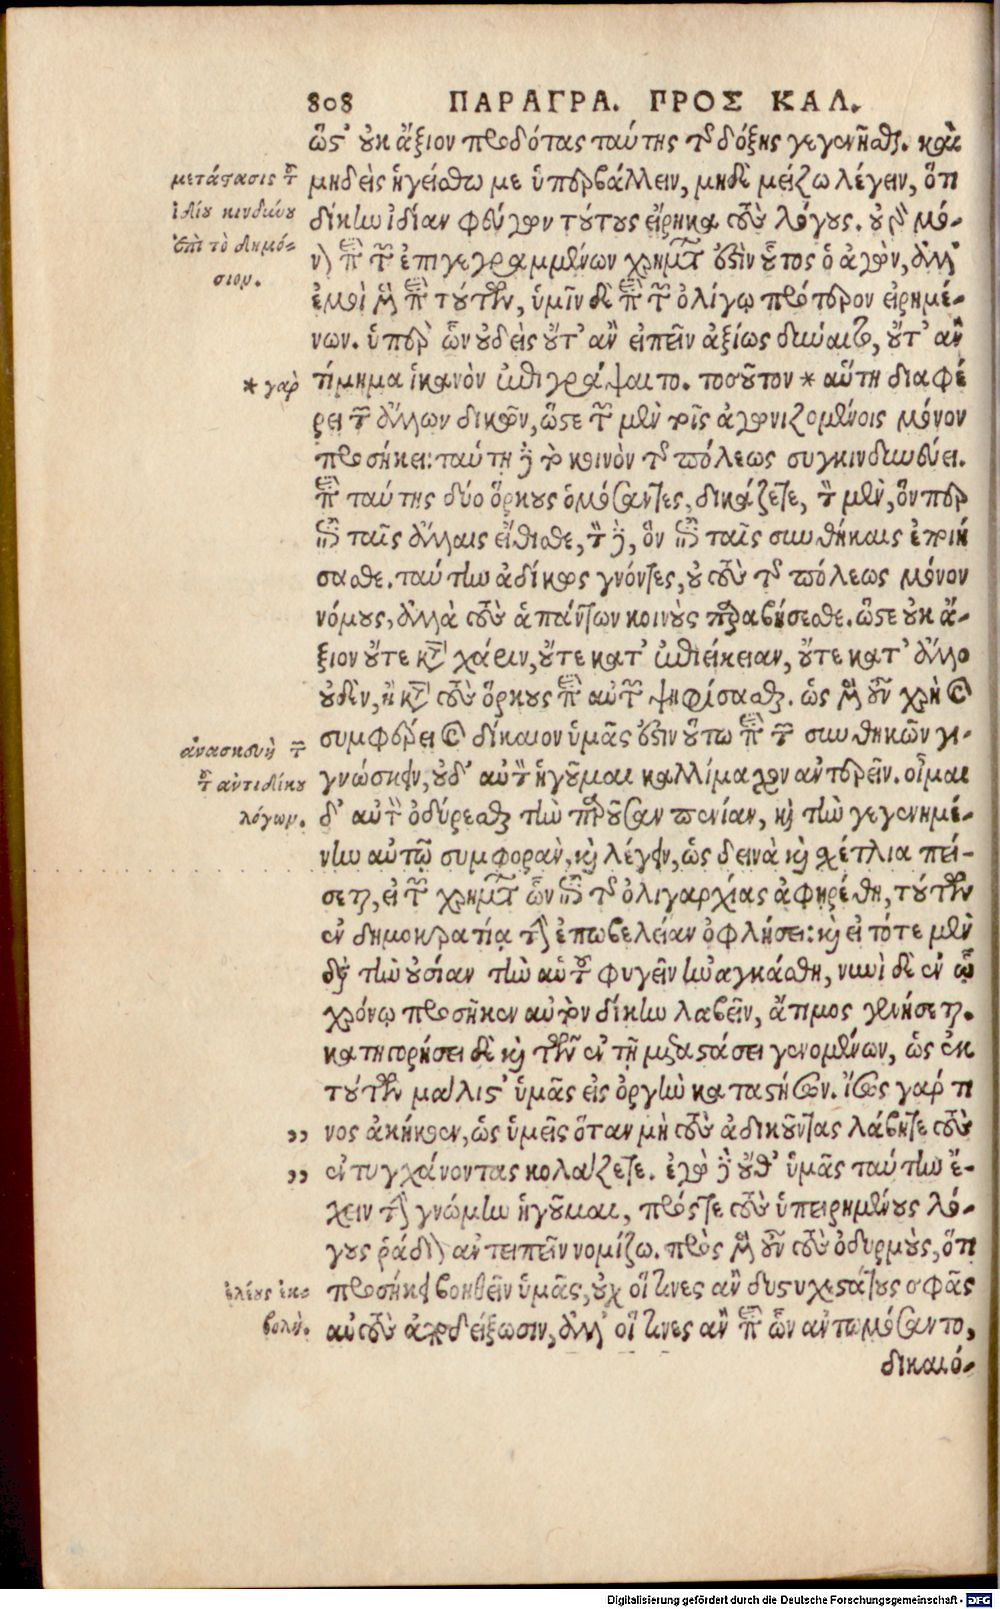 808 ΠΑΡΑΓΡΑ. ΠΡΟΣ ΚΑΛ.
ὥστ' οὐκ ἄξιον προδότας ταύτης τῆς δόξης γεγενῆσθαι. καὶ
μετάστασις τοῦ
μηδεὶς ἡγείσθω με ὑπερβάλλειν, μηδὲ μείζω λέγειν, ὅτι
ἰδίου κινδύνου
δίκην ἰδίαν φεύγων τούτους εἴρηκα τοὺς λόγους. οὐ γὰρ μό-
ἐπὶ τὸ δημό-
σιον.
νον περὶ τῶν ἐπιγεγραμμένων χρημάτων ἐστὶν οὗτος ὁ ἀγὼν, ἀλλ'
ἐμοὶ μὲν περὶ τούτων, ὑμῖν δὲ περὶ τῶν ὀλίγῳ πρότερον εἰρημέ-
νων. ὑπὲρ ὧν οὐδεὶς οὔτ' ἂν εἰπεῖν ἀξίως δύναιτο, οὔτ' ἂν
* γὰρ
τίμημα ἱκανὸν ἐπιγράψαιτο. τοσοῦτον * αὕτη διαφέ
ρει τῶν ἄλλων δικῶν, ὥστε τῶν μὲν τοῖς ἀγωνιζομένοις μόνον
προσήκει: ταύτῃ δὲ τὸ κοινὸν τῆς πόλεως συγκινδυνεύει.
περὶ ταύτης δύο ὅρκους ὀμόσαντες, δικάζετε, τὸν μὲν, ὅνπερ
ἐπὶ ταῖς ἄλλαις εἴθισθε, τὸν δὲ, ὃν ἐπὶ ταῖς συνθήκαις ἐποιή
σασθε. ταύτην ἀδίκως γνόντες, οὐ τοὺς τῆς πόλεως μόνον
νόμους, ἀλλὰ τοὺς ἁπάντων κοινοὺς παραβήσεσθε. ὥστε οὐκ ἄ-
ξιον οὔτε κατὰ χάριν, οὔτε κατ' ἐπιείκειαν, οὔτε κατ' ἄλλο
οὐδὲν, ἢ κατὰ τοὺς ὅρκους περὶ αὐτῶν ψηφίσασθαι. ὡς μὲν οὖν χρὴ καὶ
ἀνασκευὴ τῶν
συμφέρει καὶ δίκαιον ὑμᾶς ἐστιν οὕτω περὶ τῶν συνθηκῶν γι-
τοῦ ἀντιδίκου
γνώσκειν, οὐδ' αὐτὸν ἡγοῦμαι καλλίμαχον ἀντερεῖν. οἶμαι
λόγων.
δ' αὐτὸν ὀδύρεσθαι τὴν παροῦσαν πενίαν, καὶ τὴν γεγενημέ-
νην αὐτῷ συμφορὰν, καὶ λέγειν, ὡς δεινὰ καὶ σχέτλια πεί-
σεται, εἰ τῶν χρημάτων ὧν ἐπὶ τῆς ὀλιγαρχίας ἀφῃρέθη, τούτων
ἐν δημοκρατίᾳ τὴν ἐπωβελείαν ὀφλήσει: καὶ εἰ τότε μὲν
διὰ τὴν οὐσίαν τὴν αὑτοῦ φυγεῖν ἠναγκάσθη, νυνὶ δὲ ἐν ᾧ
χρόνῳ προσῆκεν αὐτὸν δίκην λαβεῖν, ἄτιμος γενήσεται.
κατηγορήσει δὲ καὶ τῶν ἐν τῇ μεταστάσει γενομένων, ὡς ἐκ
τούτων μάλιστ' ὑμᾶς εἰς ὀργὴν καταστήσων. ἴσως γάρ τι
„ νος ἀκήκοεν, ὡς ὑμεῖς ὅταν μὴ τοὺς ἀδικοῦντας λάβητε τοὺς
„ ἐντυγχάνοντας κολάζετε. ἐγὼ δὲ οὔθ' ὑμᾶς ταύτην ἔ-
χειν τὴν γνώμην ἡγοῦμαι, πρός τε τοὺς ὑπειρημένους λό-
γους ῥάδιον ἀντειπεῖν νομίζω. πρὸς μὲν οὖν τοὺς ὀδυρμοὺς, ὅτι
ἐλέους ἐκ-
προσήκει βοηθεῖν ὑμᾶς, οὐχ οἵτινες ἂν δυστυχεστάτους σφᾶς
βολή.
αὐτοὺς ἀποδείξωσιν, ἀλλ' οἵτινες ἂν περὶ ὧν ἀντωμόσαντο,
δικαιό-
Digitalisierung gefördert durch die Deutsche Forschungsgemeinschaft - DFG